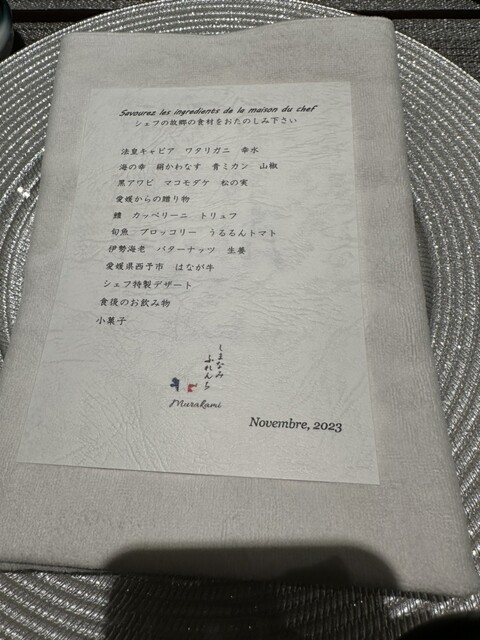 Savourez les ingredients de la maison du chef
シェフの故郷の食材をおたのしみ下さい
法皇キャビア ワタリガニ 幸水
海の幸 絹かわなす 青ミカン 山椒
黒アワビ マコモダケ 松の実
愛媛からの贈り物
鱧 カッペリーニ トリュフ
旬魚 ブロッコリー うるるんトマト
伊勢海老 バターナッツ 生姜
愛媛県西予市 はなが牛
シェフ特製デザート
食後のお飲み物
小菓子
しまなみ
ふれんち
Murakami
Novembre, 2023